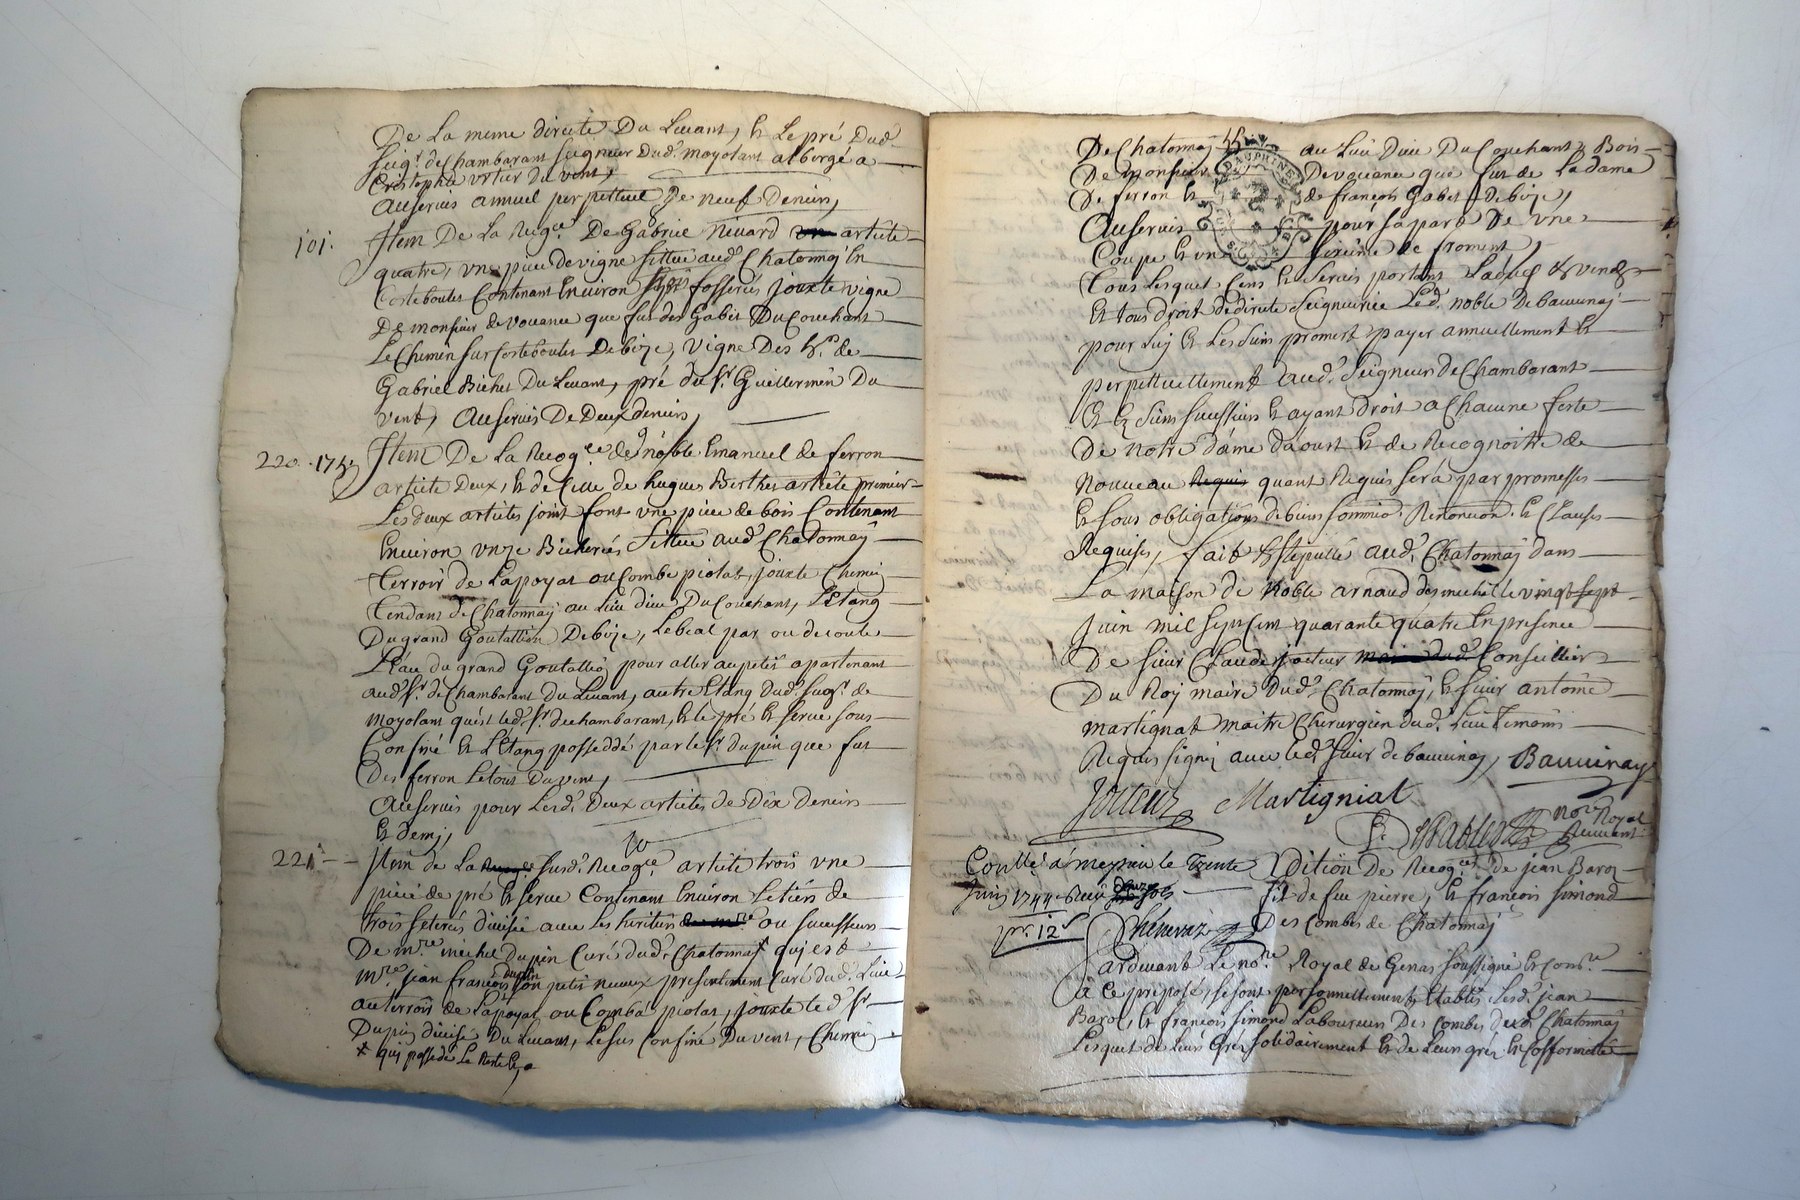 De La meme directe Du Levant, & Le pré Dud.
Seigr. de Chambarant Seigneur Dud. moyolant albergé a
Cristophle vrtier du vent,
Auservis annuel perpettuel De neuf Deniers,
101. Item De La Recogce De Gabriel Nivard article
quatre, vne piece de vigne sittue aud. Chatonnaj En
Costeboutes Contenant Environ fosserés jouxte vigne
De monsieur de Vovance que fut des Gabet Du Couchant
Le Chemin sur Costeboutes De bize, vigne Des hrs de
Gabriel Bichet Du Levant, pré du Sr Guillermin Du
vent, Auservis De Deux deniers,
220. Item De La Recogce de noble Emanuel de ferron
article Deux, & de Celle de hugues Berthet article premier
Les deux articles joint font vne piece de bois Contenant
Environ vnze Bicherées Sittue aud. Chatonnaj
terroir de Lapoyat ou Combe piolat, jouxte Chemin
tendant de Chatonnaj au Lieu dieu Du Couchant, L'Etang
Du grand Goutallion De bize, Le beal par ou decoule
L'eau du grand Goutallion pour aller au petit apartenant
aud. Sr. de Chambarant du Levant, autre Etang dud. Seigr. de
moyolant qu'est led. Sr. de chambarant, & le pré & serve sous
Confiné & L'Etang possedé par le Sr. dupin que fut
Des ferron Le tout Du vent,
Auservis pour Lesd. Deux articles de Dix deniers
& demj,
221. Item de La Susd. Recogce. article trois vne
piece de pré & serve Contenant Environ Le tiers de
trois seterés divisée avec Les heritiers ou successeurs
De mre. michel dupin Curé dud. Chatonnaj + quj est
mre. jean francois dupin son petit neveux presentement Curé dud. Lieu
au terroir de Lapoyat ou Comba piolat, jouxte led. Sr
Dupin divisé Du Levant, Le sus Confiné Du vent, Chemin
+ quj possede Le Reste
De Chatonnaj au Lieu Dieu Du Couchant & Bois
De monsieur De vovance que fut de La dame
De ferron & de francois Gabet De bize,
Auservis pour sa part De vne
Coupe & vn siviere de froment,
Tous Lesquels Cens & Servis portant Laods & vends
& tous droit De directe Seigneurie Led. noble De bauvinaj
pour Luj & Les siens promest payer annuellement &
perpettuellement aud. Seigneur de Chambarant
& Es siens successeurs & ayant droit a Chacune feste
De Notre dame d'aoust & de Recognoitre de
Nouveau quant Requis sera par promesses
& sous obligations de biens Renoncion. & Clauses
Requises, fait & stipullé aud. Chatonnaj dans
La maison de Noble arnaud desmichel le vingt sept
Juin mil sept Cent quarante quatre En presence
De sieur Claude Conseillier
Du Roy maire Dud. Chatonnaj, & sieur antoine
martignat maitre Chirurgien dud. Lieu Temoins
Requis signé avec led. sieur de bauvinaj, Bauvinay
Martigniat
Nore. Royal
Recevant
Conllé. a meyrieu le Trente
Juin 1744 Receu sols
12 s
Chenevaz
Adition De Recogce. de jean Barot
fils de feu pierre, & francois simond
Des Combes de Chatonnaj
Pardevant Le nore. Royal de Genas soussigné & Comre.
a ce preposé, se sont personnellement Etablis Lesd. jean
Barot, & francois simond Laboureurs Des Combes de Chatonnaj
Lesquel de Leurs Grez solidairement & de Leurs grez